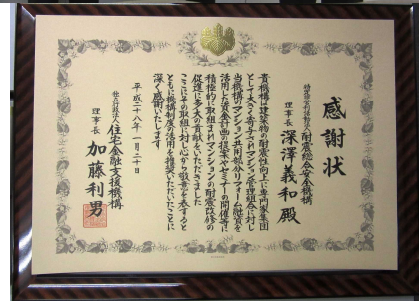 感謝状
特定非営利活動法人 耐震総合安全機構
理事長 深澤義和 殿
貴機構は建築物の耐震性向上に専門家集団
として大きく寄与されマンション管理組合に対し
当機構のマンション共用部分リフォーム融資を
活用した資金計画の提案やセミナーの開催等に
積極的に取組まれマンションの耐震改修の
促進に多大の貢献をいただきました
ここにその取組に対し心から敬意を表すると
ともに機構制度の活用を推奨いただいたことに
深く感謝いたします
平成二十八年一月二十日
独立行政法人 住宅金融支援機構
理事長 加藤利男